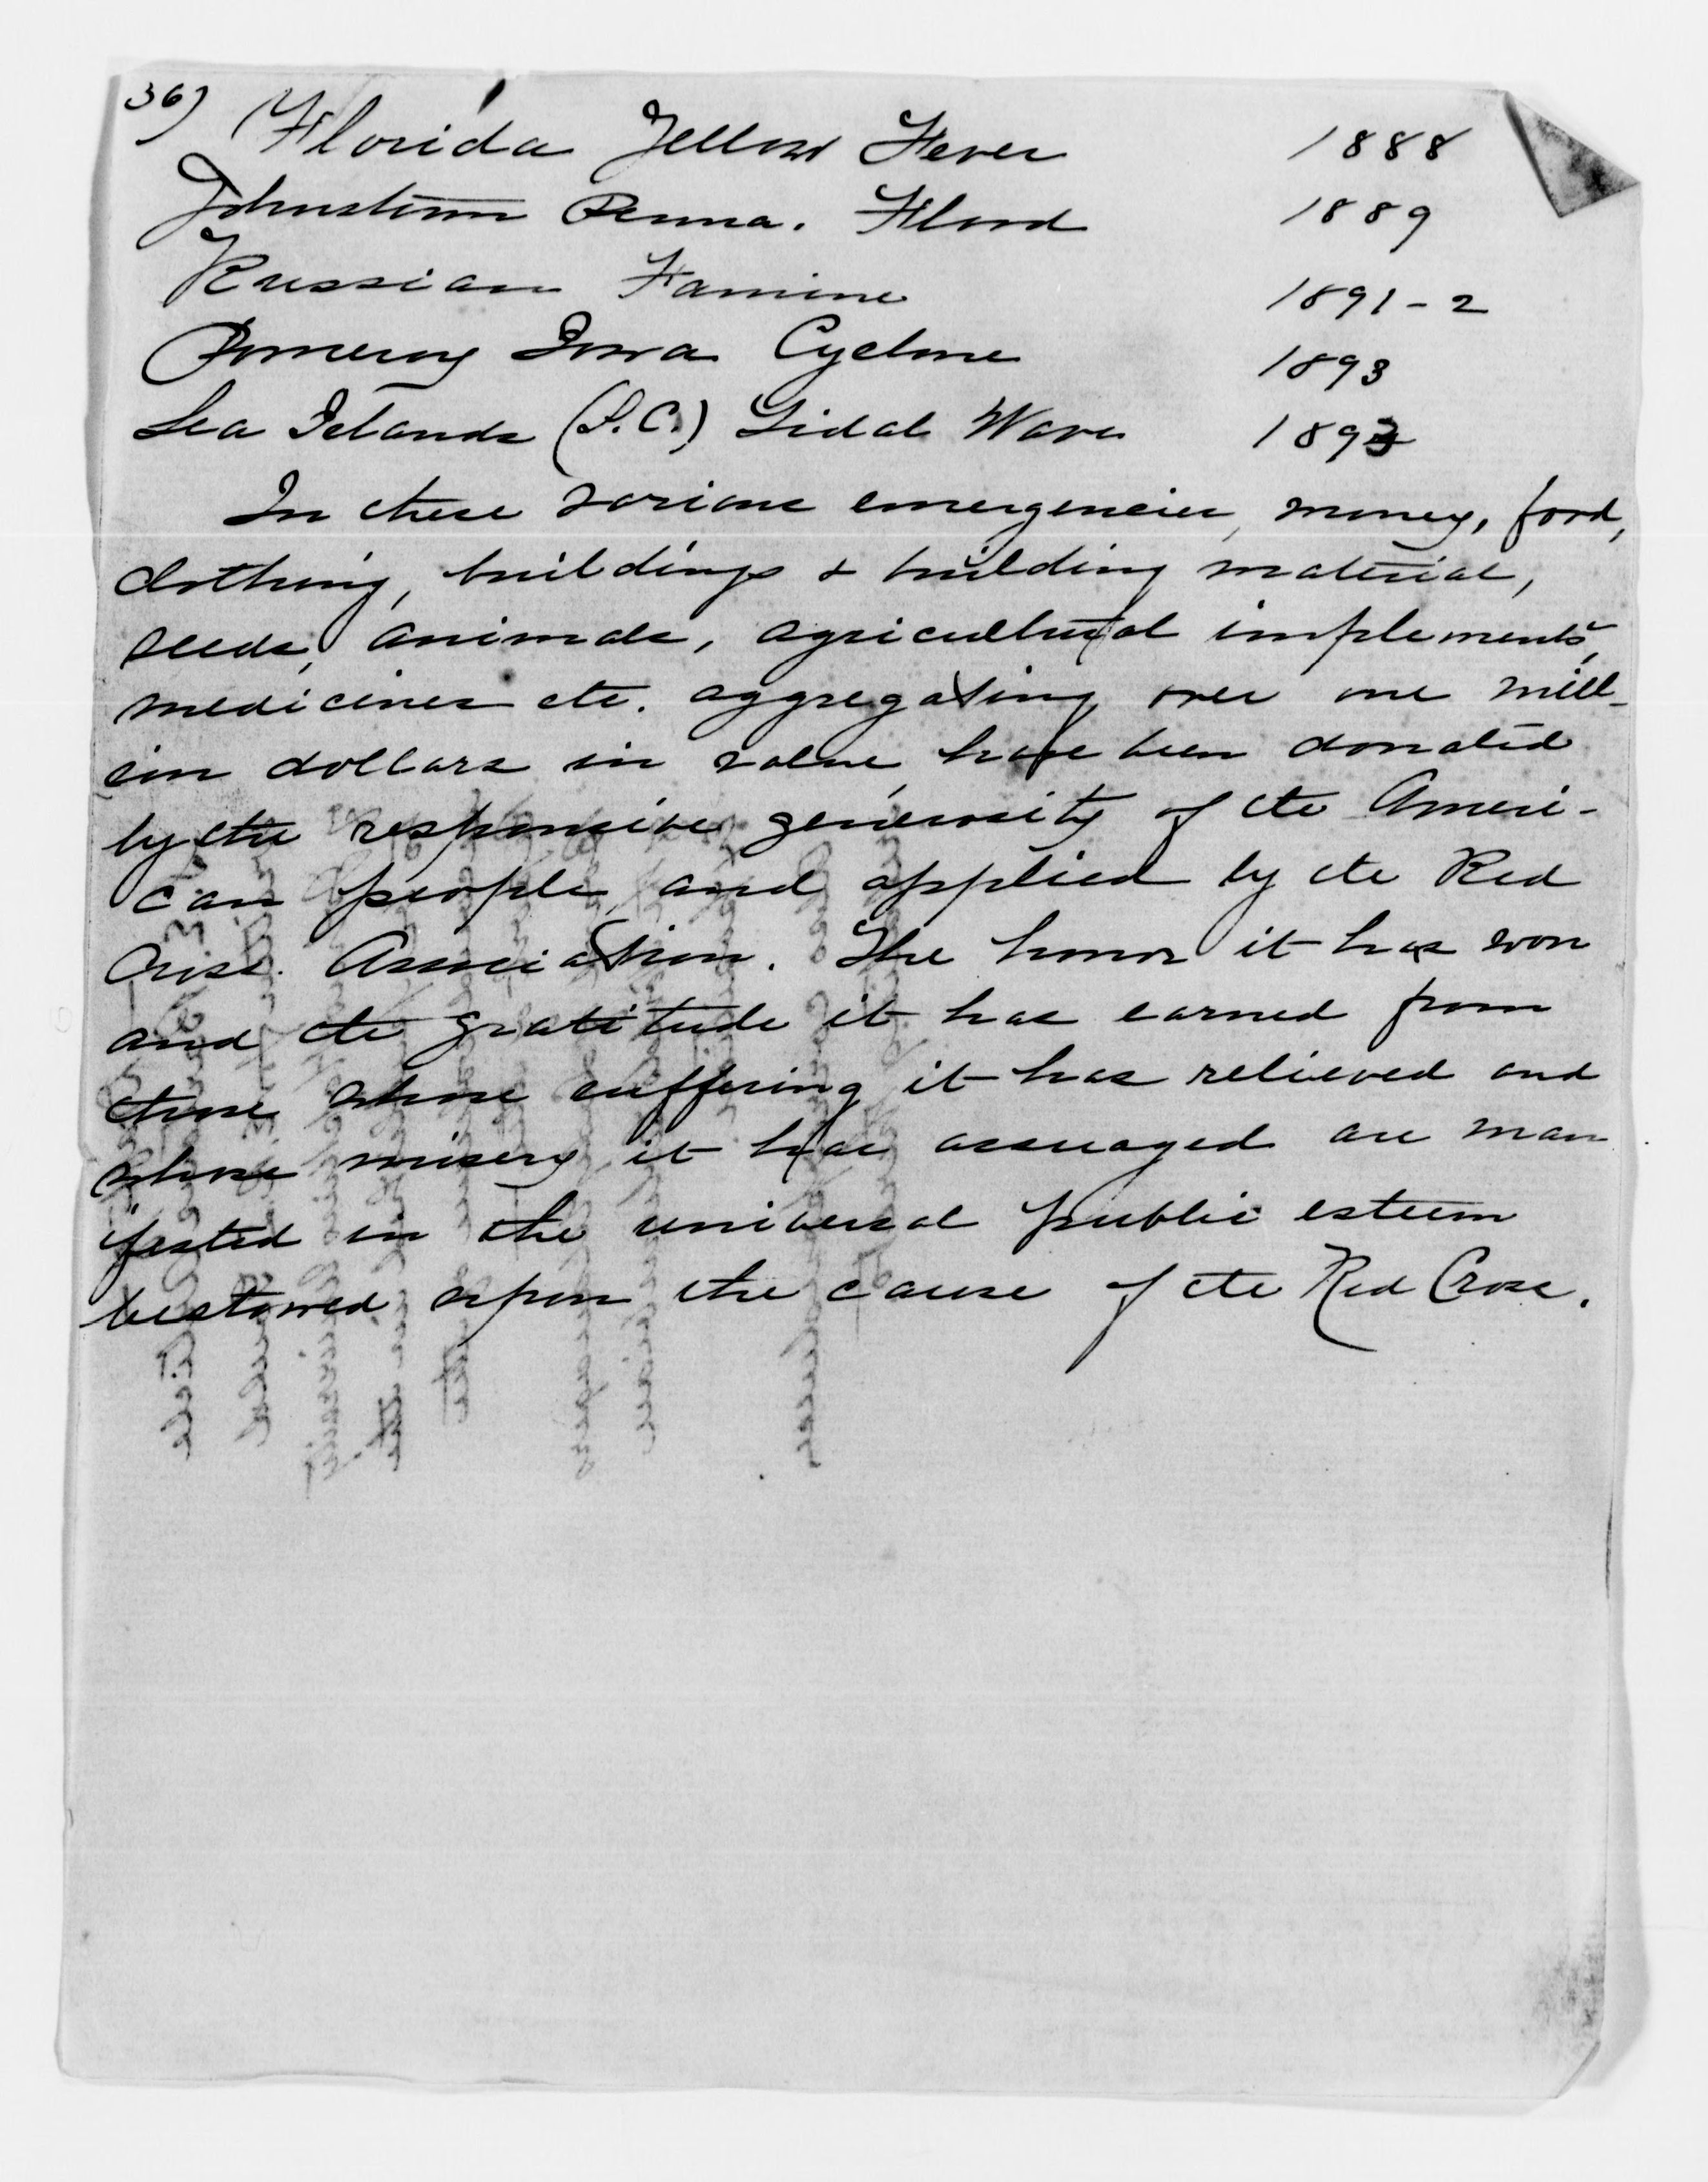 36) Florida Yellow Fever 1888
Johnstown Penna. Flood 1889
Russian Famine 1891-2
Pomeroy Iowa Cyclone 1893
Sea Islands (S.C.) Tidal Wave 1893
In these various emergencies, money, food,
clothing, buildings & building material,
seeds, animals, agricultural implements,
medicines etc. aggregating over one mill-
ion dollars in value, have been donated
by the responsive generosity of the Ameri-
can people, and applied by the Red
Cross Association. The honor it has won
and the gratitude it has earned from
those whose suffering it has relieved and
whose misery it has assuaged are man
ifested in the universal public esteem
bestowed upon the cause of the Red Cross.